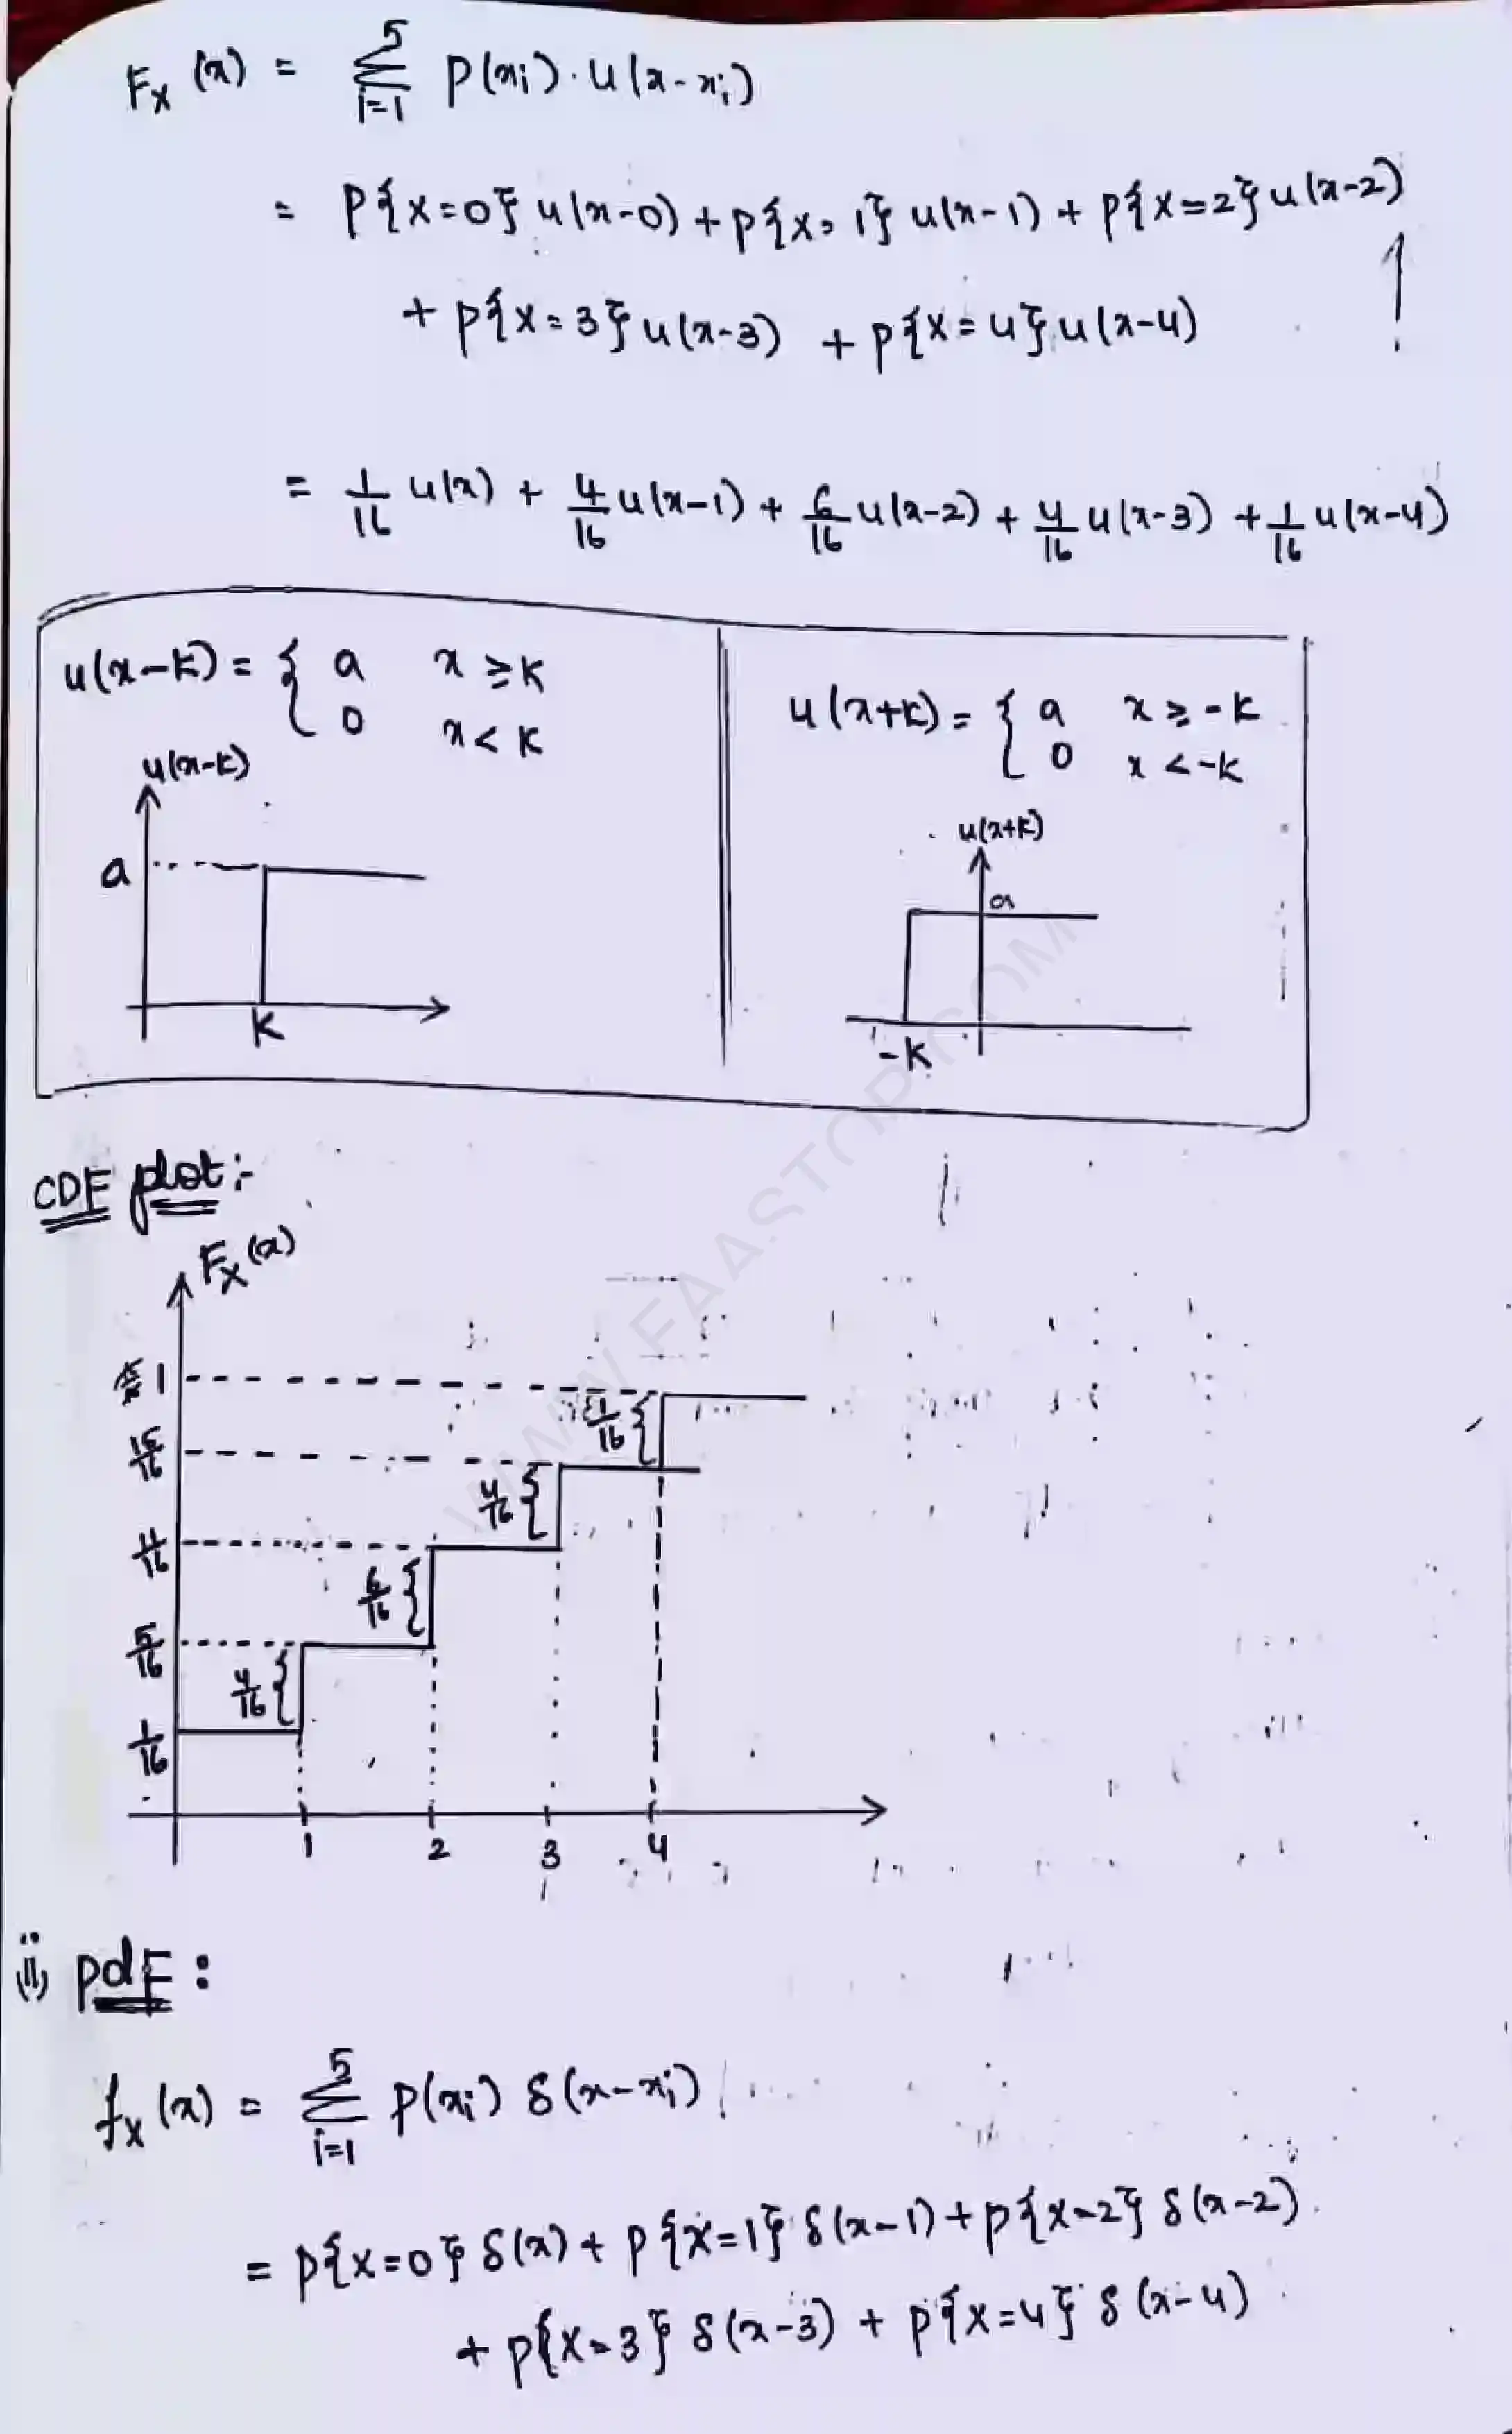 F_X(x) = Σ_{i=1}^{5} P(xi)·u(x-xi)
= P{X=0} u(x-0) + P{X=1} u(x-1) + P{X=2} u(x-2)
+ P{X=3} u(x-3) + P{X=4} u(x-4)
= 1/16 u(x) + 4/16 u(x-1) + 6/16 u(x-2) + 4/16 u(x-3) + 1/16 u(x-4)
u(x-k) = { a x ≥ k
0 x < k
u(x-k)
a
k
u(x+k) = { a x ≥ -k
0 x < -k
u(x+k)
a
-k
CDF plot:-
F_X(x)
1
15/16
11/16
5/16
1/16
1/16
4/16
6/16
4/16
1 2 3 4
ii) pdF:
f_X(x) = Σ_{i=1}^{5} P(xi) δ(x-xi)
= P{X=0} δ(x) + P{X=1} δ(x-1) + P{X=2} δ(x-2)
+ P{X=3} δ(x-3) + P{X=4} δ(x-4)